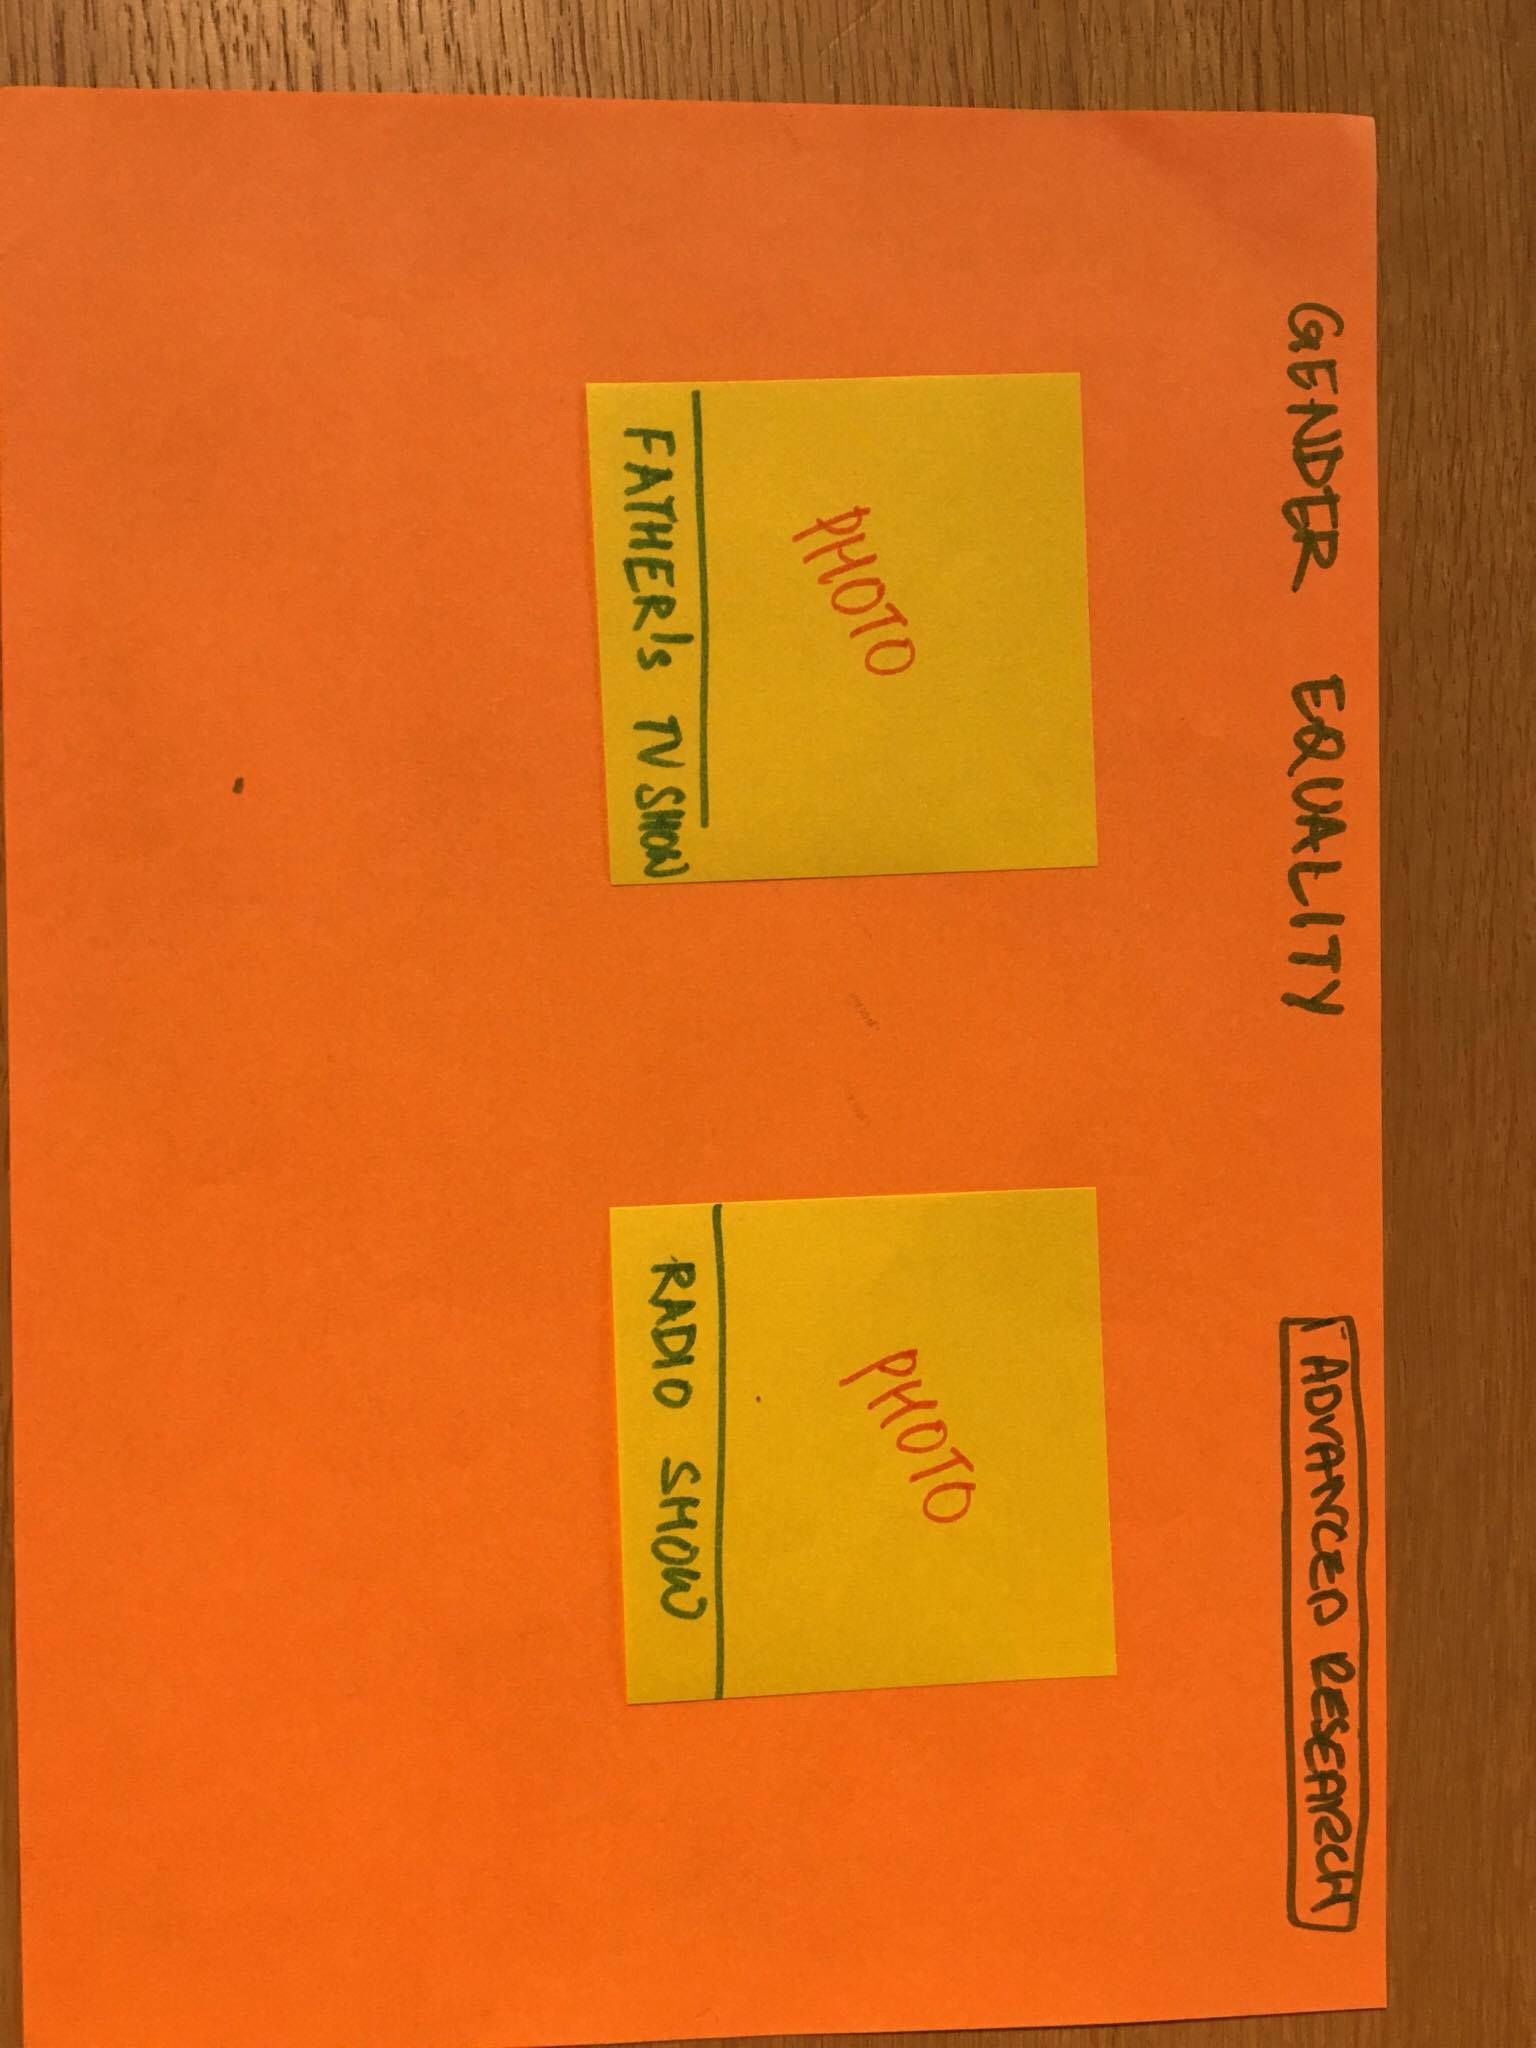 GENDER EQUALITY
ADVANCED RESEARCH
PHOTO
FATHER's TV SHOW
PHOTO
RADIO SHOW